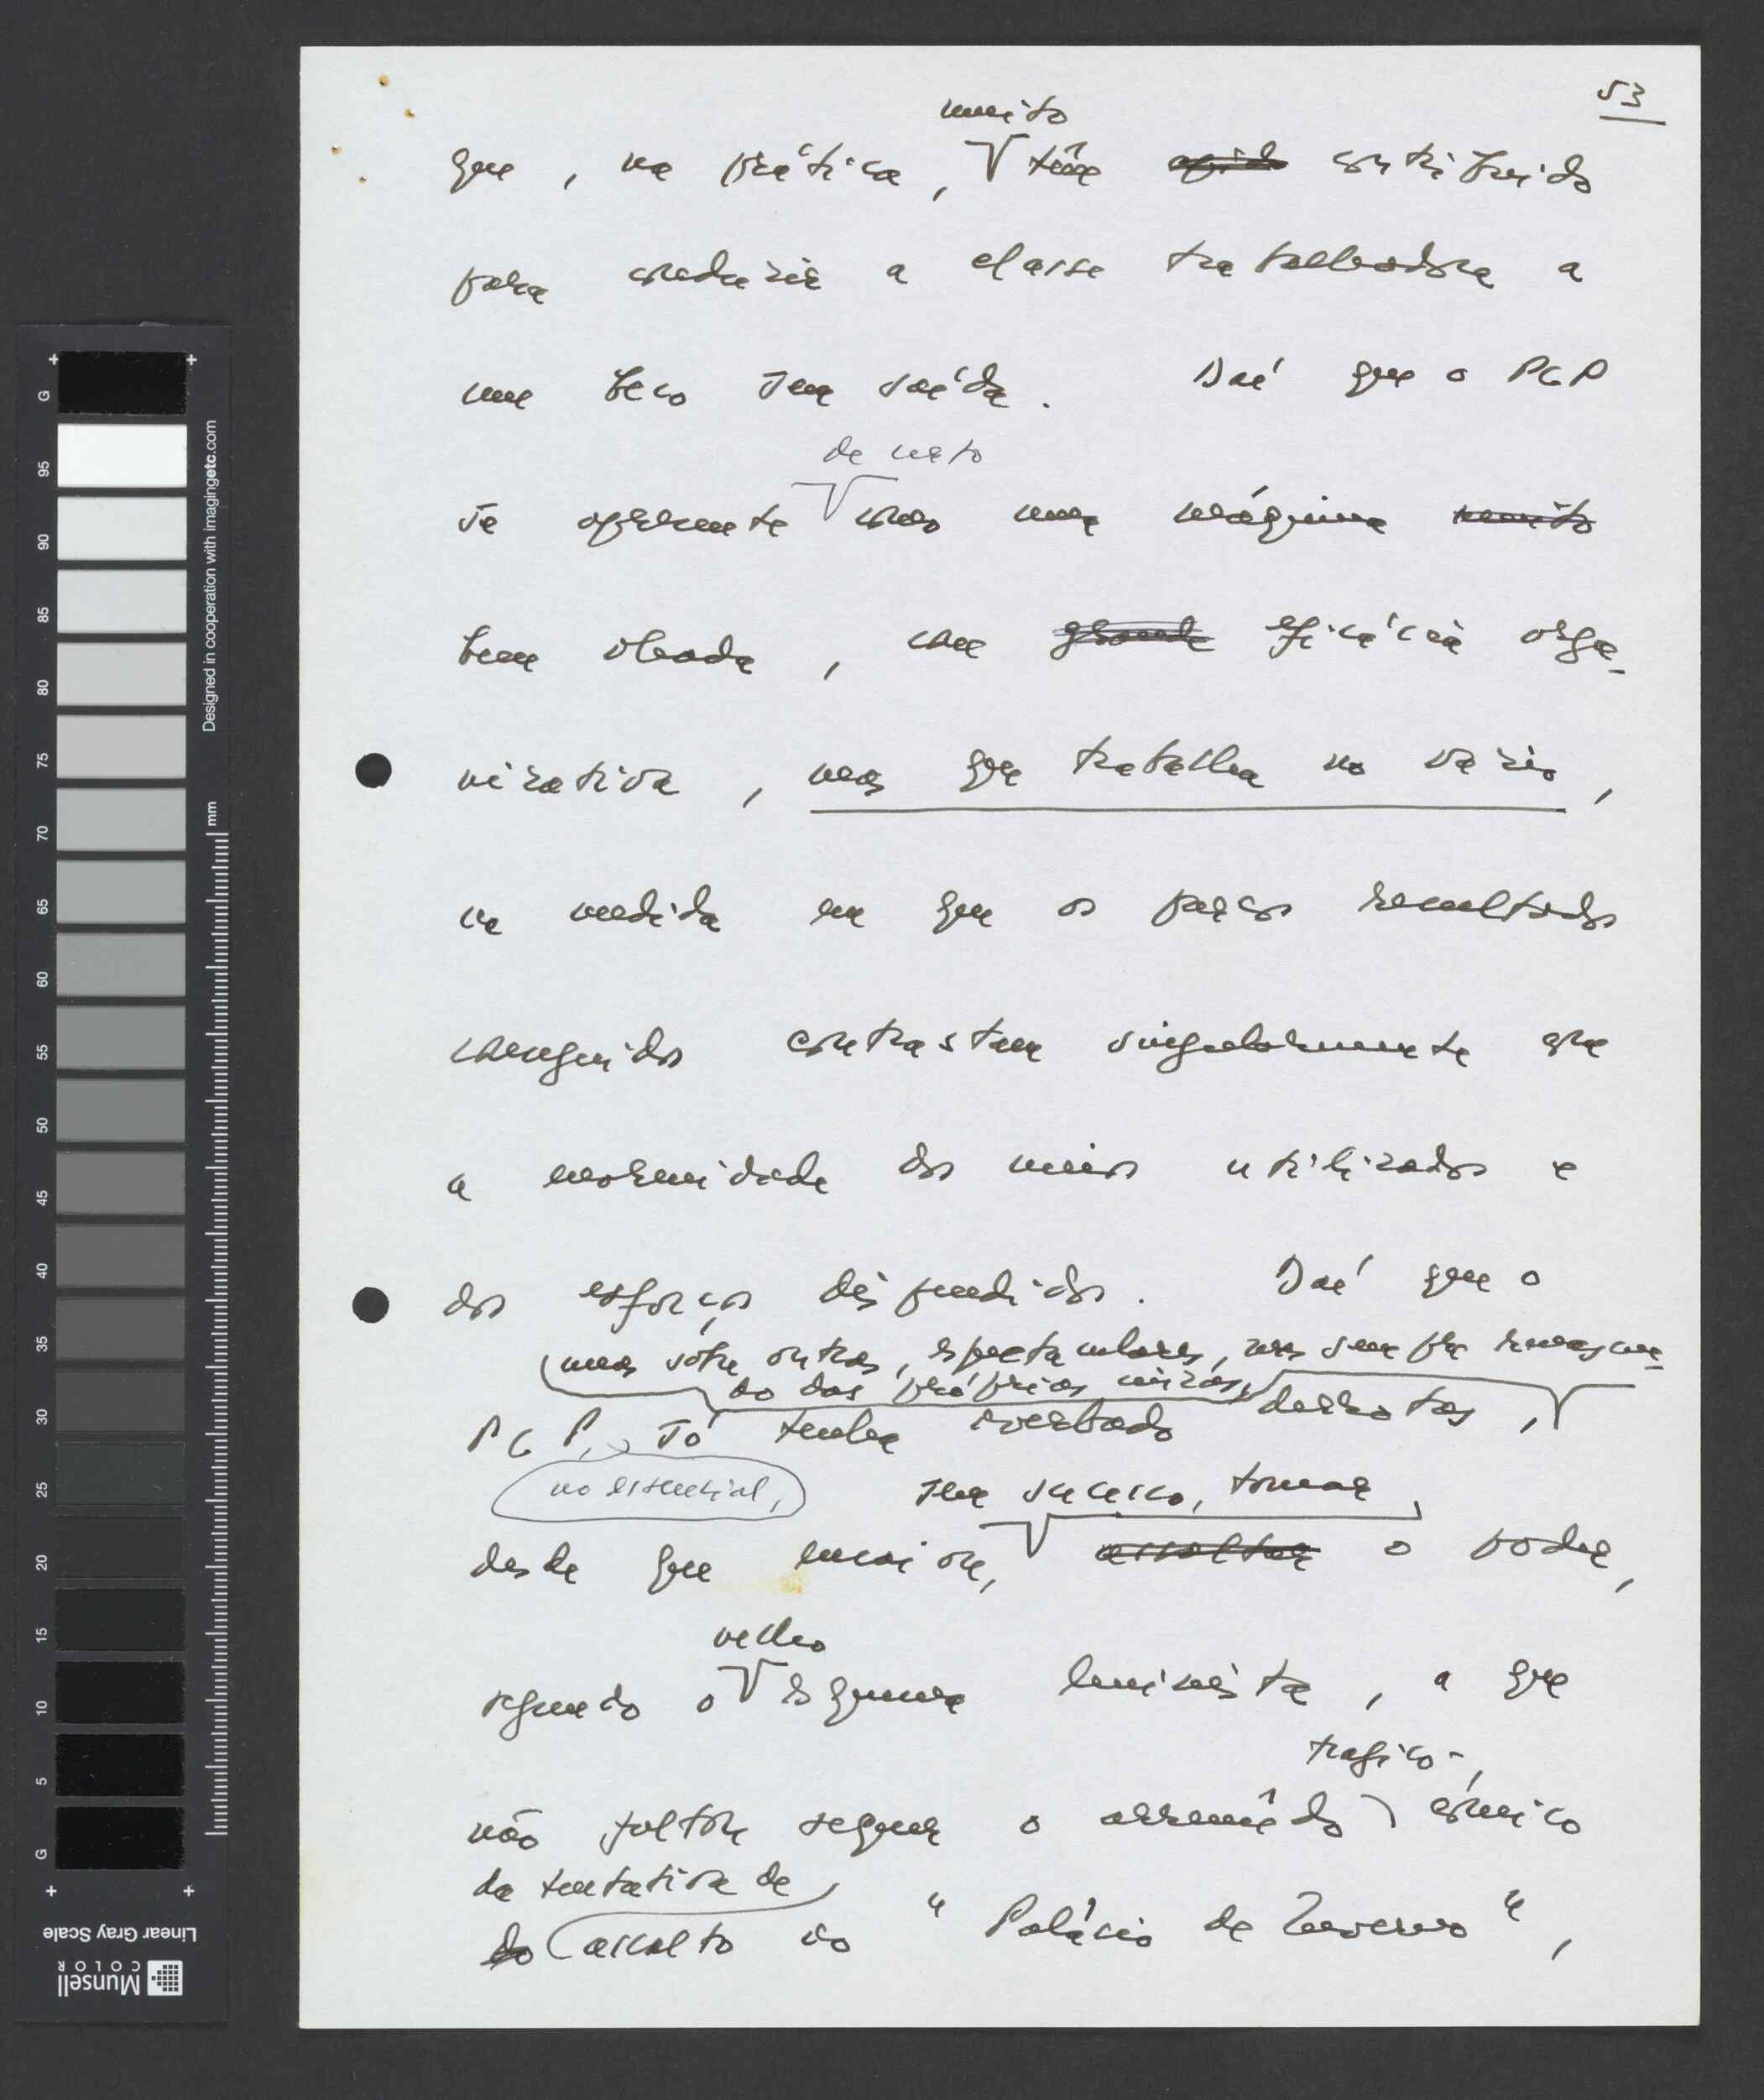 53
muito
que, na prática, têm contribuido
para conduzir a classe trabalhadora a
um beco sem saída. Daí que o PCP
de certo
se apresente como uma máquina muito
bem oleada, com grande eficácia orga-
nizativa, mas que trabalha no vazio,
na medida em que os parcos resultados
conseguidos contrastam singularmente com
a enormidade dos meios utilizados e
dos esforços dispendidos. Daí que o
umas sobre outras, espectaculares, mas sempre renascen-
do das próprias cinzas,
PCP, só tenha averbado derrotas,
no essencial,
sem sucesso, tomar
desde que ensaiou, assaltar o poder,
velho
segundo o esquema leninista, a que
trágico-
não faltou sequer o arremêdo cómico
da tentativa de
do assalto ao "Palácio de Inverno",
Designed in cooperation with imagingetc.com
mm
G 95 90 85 80 75 70 65 60 55 50 45 40 35 30 25 20 15 10 5 G
Linear Gray Scale
Munsell
COLOR